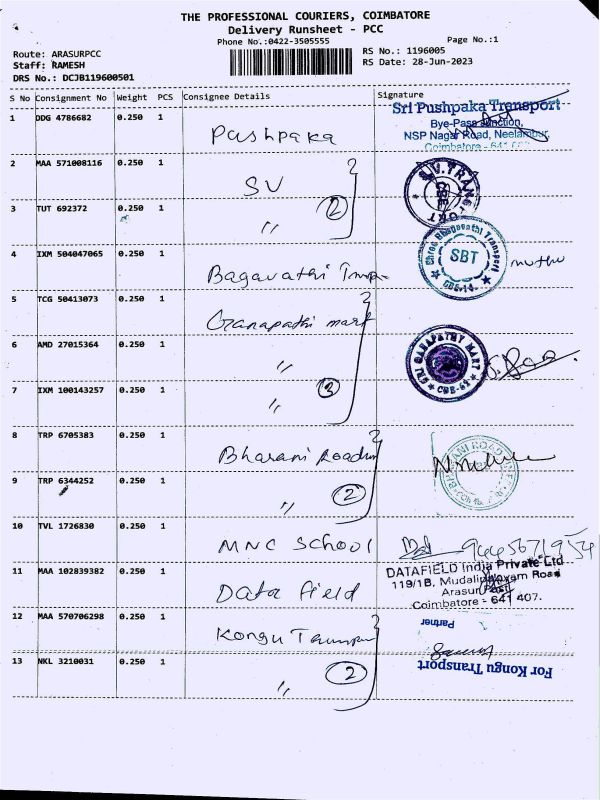 THE PROFESSIONAL COURIERS, COIMBATORE
Delivery Runsheet - PCC
Phone No.:0422-3505555
Page No.:1
Route: ARASURPCC
RS No.: 1196005
Staff: RAMESH
RS Date: 28-Jun-2023
DRS No.: DCJB119600501
S No Consignment No Weight PCS Consignee Details Signature
1 DDG 4786682 0.250 1 Pushpaka
Sri Pushpaka Transport
Bye-Pass Junction,
NSP Nagar Road, Neelambur,
Coimbatore - 641
2 MAA 571008116 0.250 1 SV
S.V.TRANSPORT
CBE
3 TUT 692372 0.250 1 〃 2
4 IXM 504047065 0.250 1 Bagavathi
Shree Bhagavathi Transport
SBT
CBE-14.
muthu
5 TCG 50413073 0.250 1 Ganapathi mart
6 AMD 27015364 0.250 1 〃
SRI GANAPATHY MART
CBE-62
7 IXM 100143257 0.250 1 〃 3
8 TRP 6705383 0.250 1 Bharani
9 TRP 6344252 0.250 1 〃 2
10 TVL 1726830 0.250 1 MNC School
11 MAA 102839382 0.250 1 Data field
DATAFIELD India Private Ltd
119/1B, Mudalipalayam Road
Arasur Post
Coimbatore - 641 407.
12 MAA 570706298 0.250 1 Kongu
Partner
13 NKL 3210031 0.250 1 〃 2
For Kongu Transport